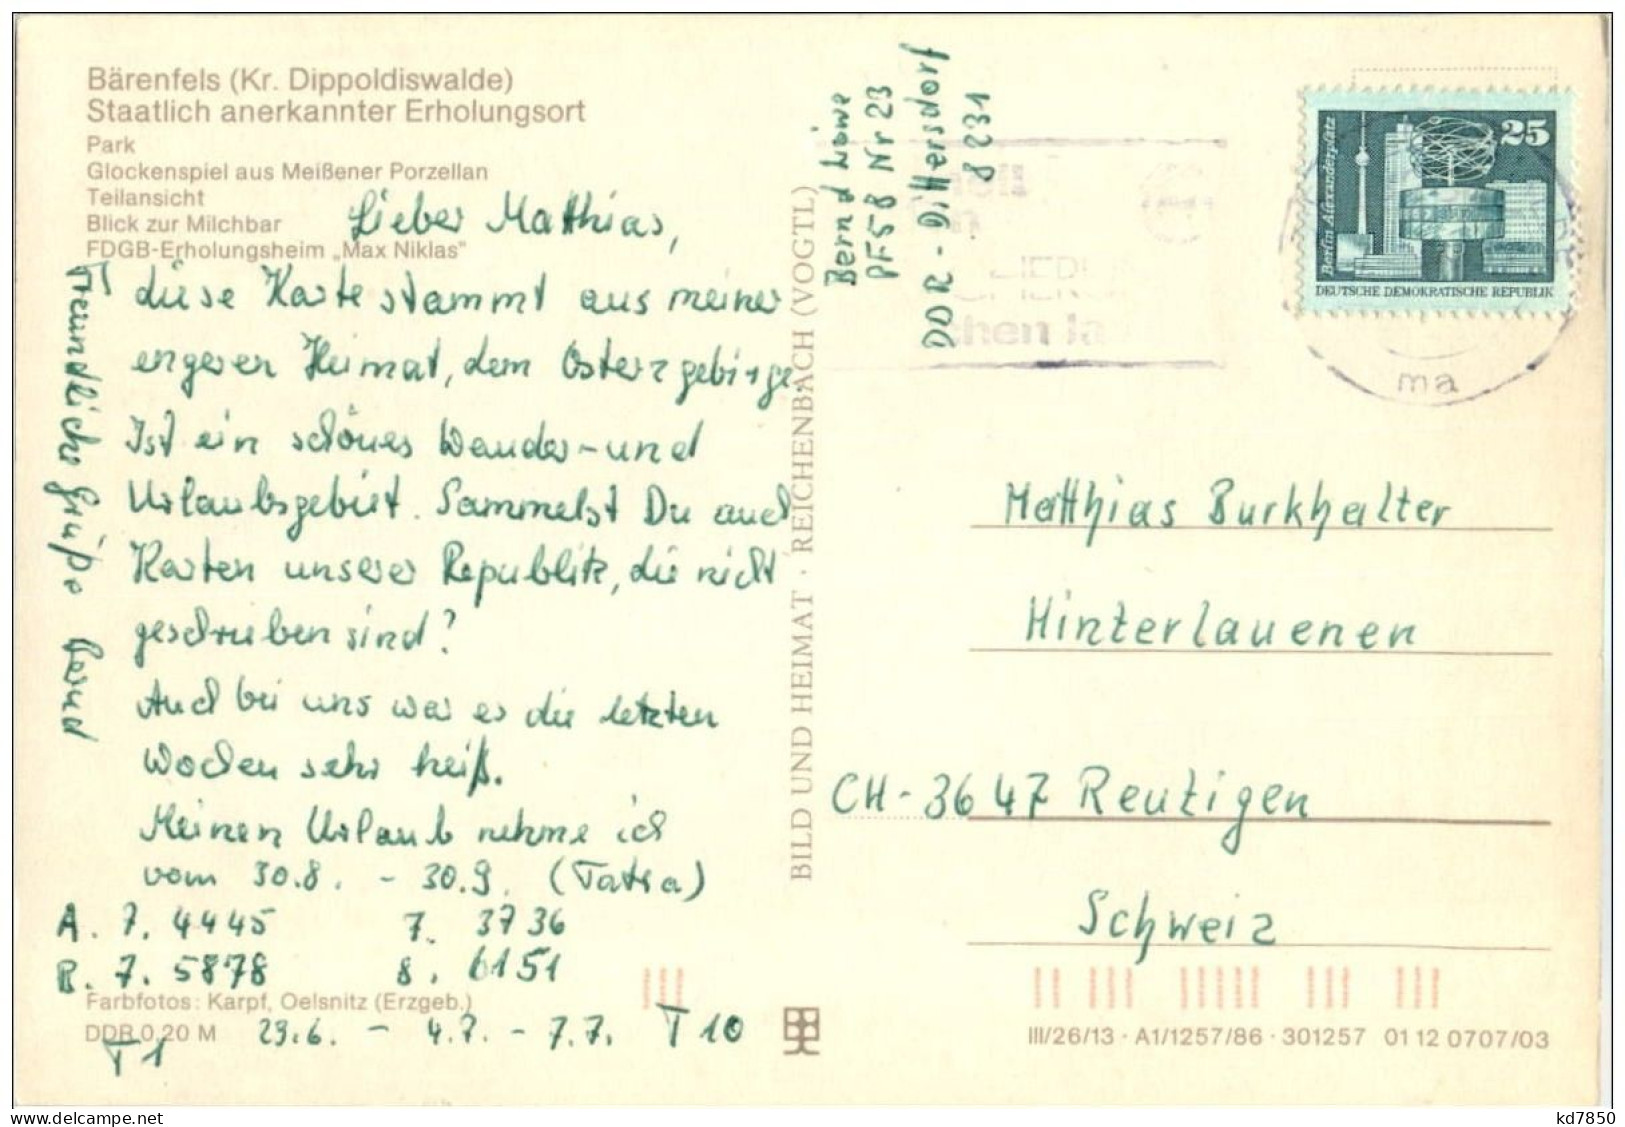 Bärenfels (Kr. Dippoldiswalde)
Staatlich anerkannter Erholungsort
Park
Glockenspiel aus Meißener Porzellan
Teilansicht
Blick zur Milchbar
FDGB-Erholungsheim „Max Niklas"
Lieber Matthias,
diese Karte stammt aus meiner
engeren Heimat, dem Osterzgebirge.
Ist ein schönes Wander-und
Urlaubsgebiet. Sammelst Du auch
Karten unserer Republik, die nicht
geschrieben sind?
Auch bei uns war es die letzten
Wochen sehr heiß.
Meinen Urlaub nehme ich
vom 30.8. - 30.9. (Tatra)
A. 7. 4445 7. 3736
R. 7. 5878 8. 6151
Farbfotos: Karpf, Oelsnitz (Erzgeb.)
DDR 0,20 M
29.6. - 4.7. - 7.7. T 10
T 1
Freundliche Grüße Bernd
BILD UND HEIMAT · REICHENBACH (VOGTL)
Bernd Löwe
PF 58 Nr 23
DDR - Dittersdorf
8231
chen la
25
Berlin, Alexanderplatz
DEUTSCHE DEMOKRATISCHE REPUBLIK
ma
Matthias Burkhalter
Hinterlauenen
CH-3647 Reutigen
Schweiz
III/26/13 · A1/1257/86 · 301257 01 12 0707/03
kd7850